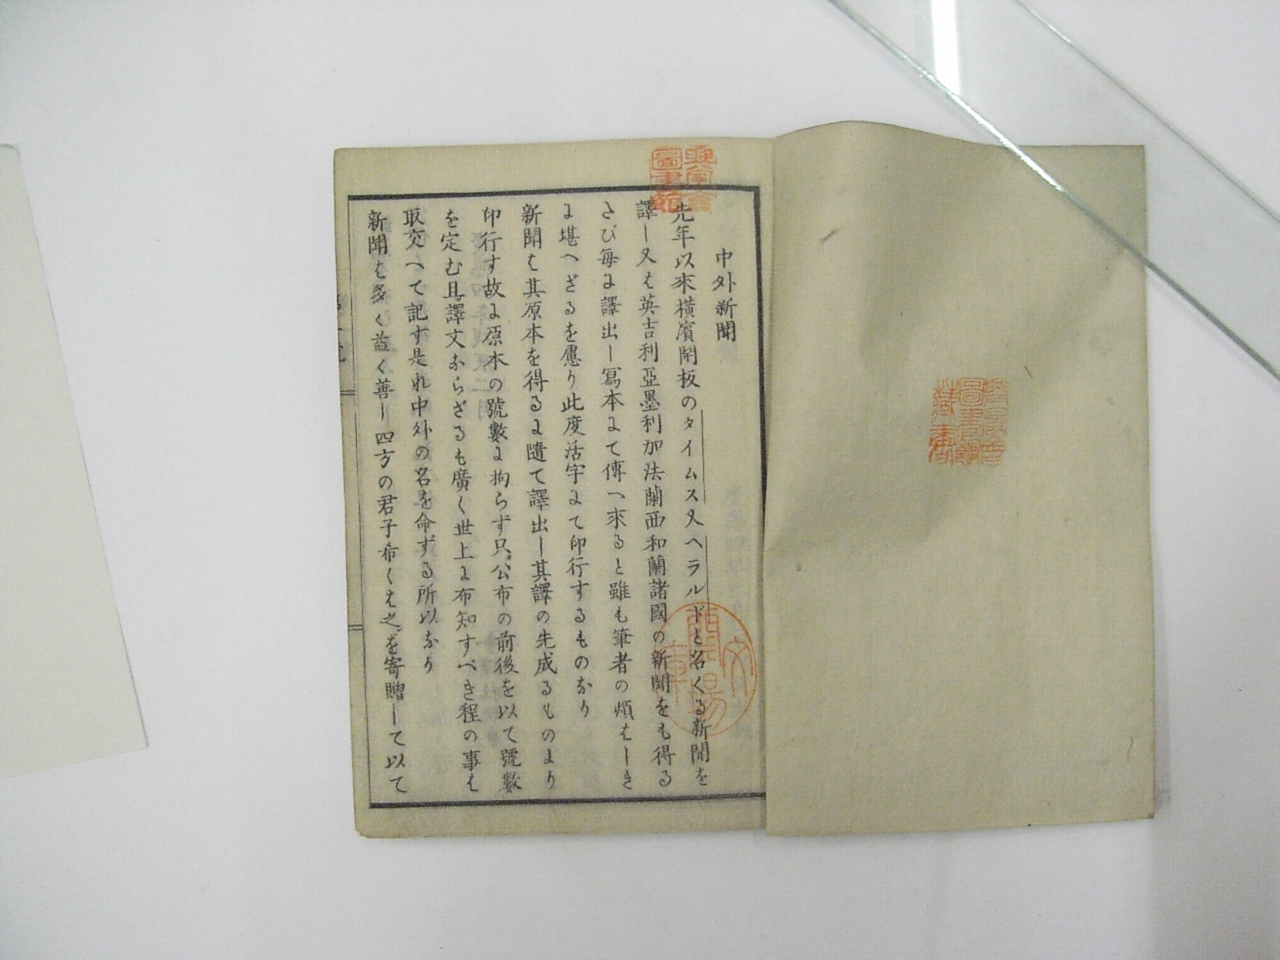 中外新聞
先年以來横濱開板のタイムス又ヘラルドと名くる新聞を
譯し又は英吉利亞墨利加法蘭西和蘭諸國の新聞をも得る
たび毎に譯出し寫本にて傳へ來ると雖も筆者の煩はしき
に堪へざるを慮り此度活字にて印行するものなり
新聞は其原本を得るに隨て譯出し其譯の先成るものより
印行す故に原本の號數に拘らず只公布の前後を以て號數
を定む且譯文ならざるも廣く世上に布知すべき程の事は
取交へて記す是れ中外の名を命ずる所以なり
新聞は多く益く善し四方の君子希くは之を寄贈して以て
圖書館
西
文